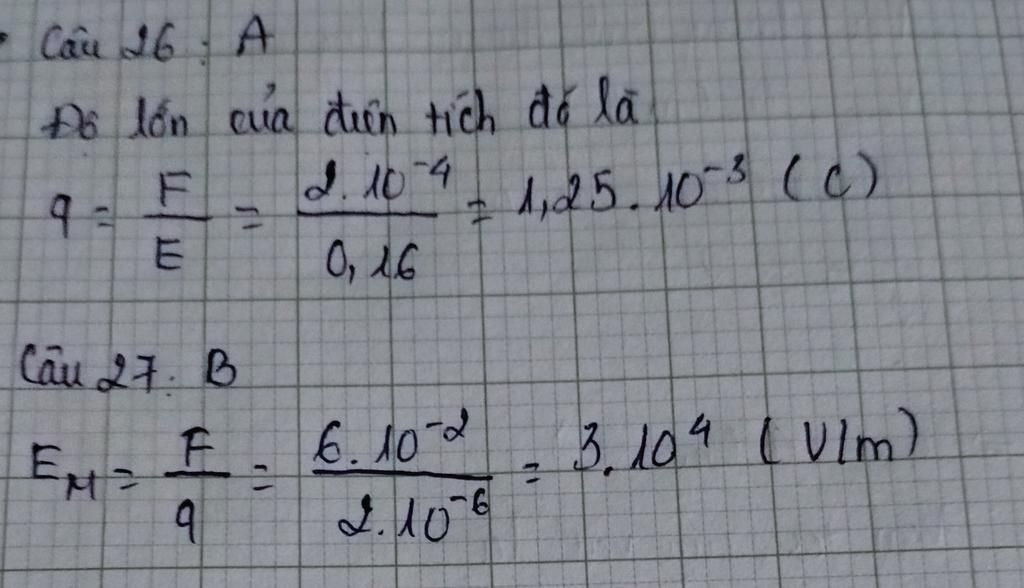 Câu 26: A
Độ lớn của điện tích đó là
q = F/E = 2.10^-4/0,16 = 1,25.10^-3 (C)
Câu 27: B
E_M = F/q = 6.10^-2/2.10^-6 = 3.10^4 (V/m)